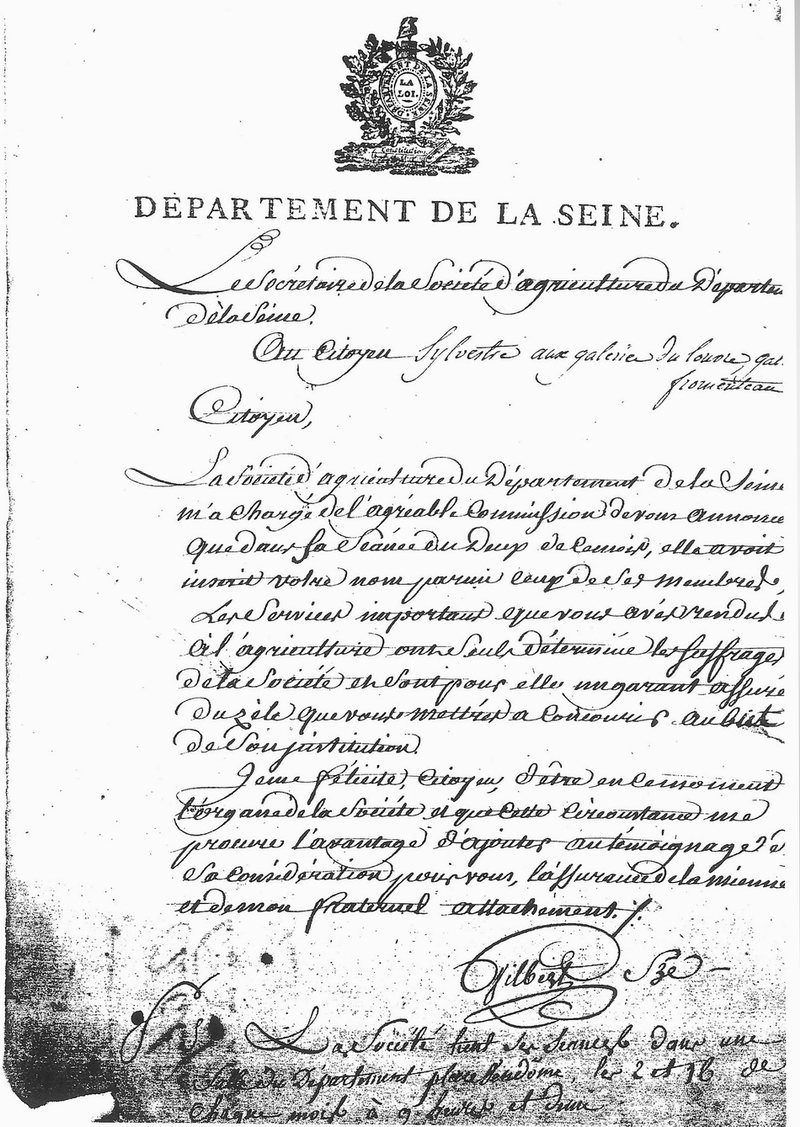 DÉPARTEMENT DE LA SEINE
LA
LOI.
Constitution
DÉPARTEMENT DE LA SEINE.
Le Secrétaire de la Société d'agriculture du Départem
de la Seine.
Au Citoyen Sylvestre aux galerie du louvre, gal
fromenteau
Citoyen,
La Société d'agriculture du Département de la Seine
m'a chargé de l'agréable Commission de vous annonce
que dans sa Séance du Deux de ce mois, elle avoit
inscrit votre nom parmi ceux de ses membres.
Les Services important que vous avés rendus
à l'agriculture ont Seuls déterminé les suffrages
de la Société et sont pour elle un garant assuré
du zèle que vous mettrés a concourir au but
de Son institution.
Je me félicite, Citoyen, d'être en ce moment
l'organe de la Société et que cette Circonstance me
procure l'avantage d'ajouter au témoignage de
Sa considération pour vous, l'assurance de la mienne
et de mon fraternel attachement./.
Gilbert Sre
La Société tient ses seances dans une
Salle du Département place Vendôme, les 2 et 16 de
Chaque mois à 9 heures et demi